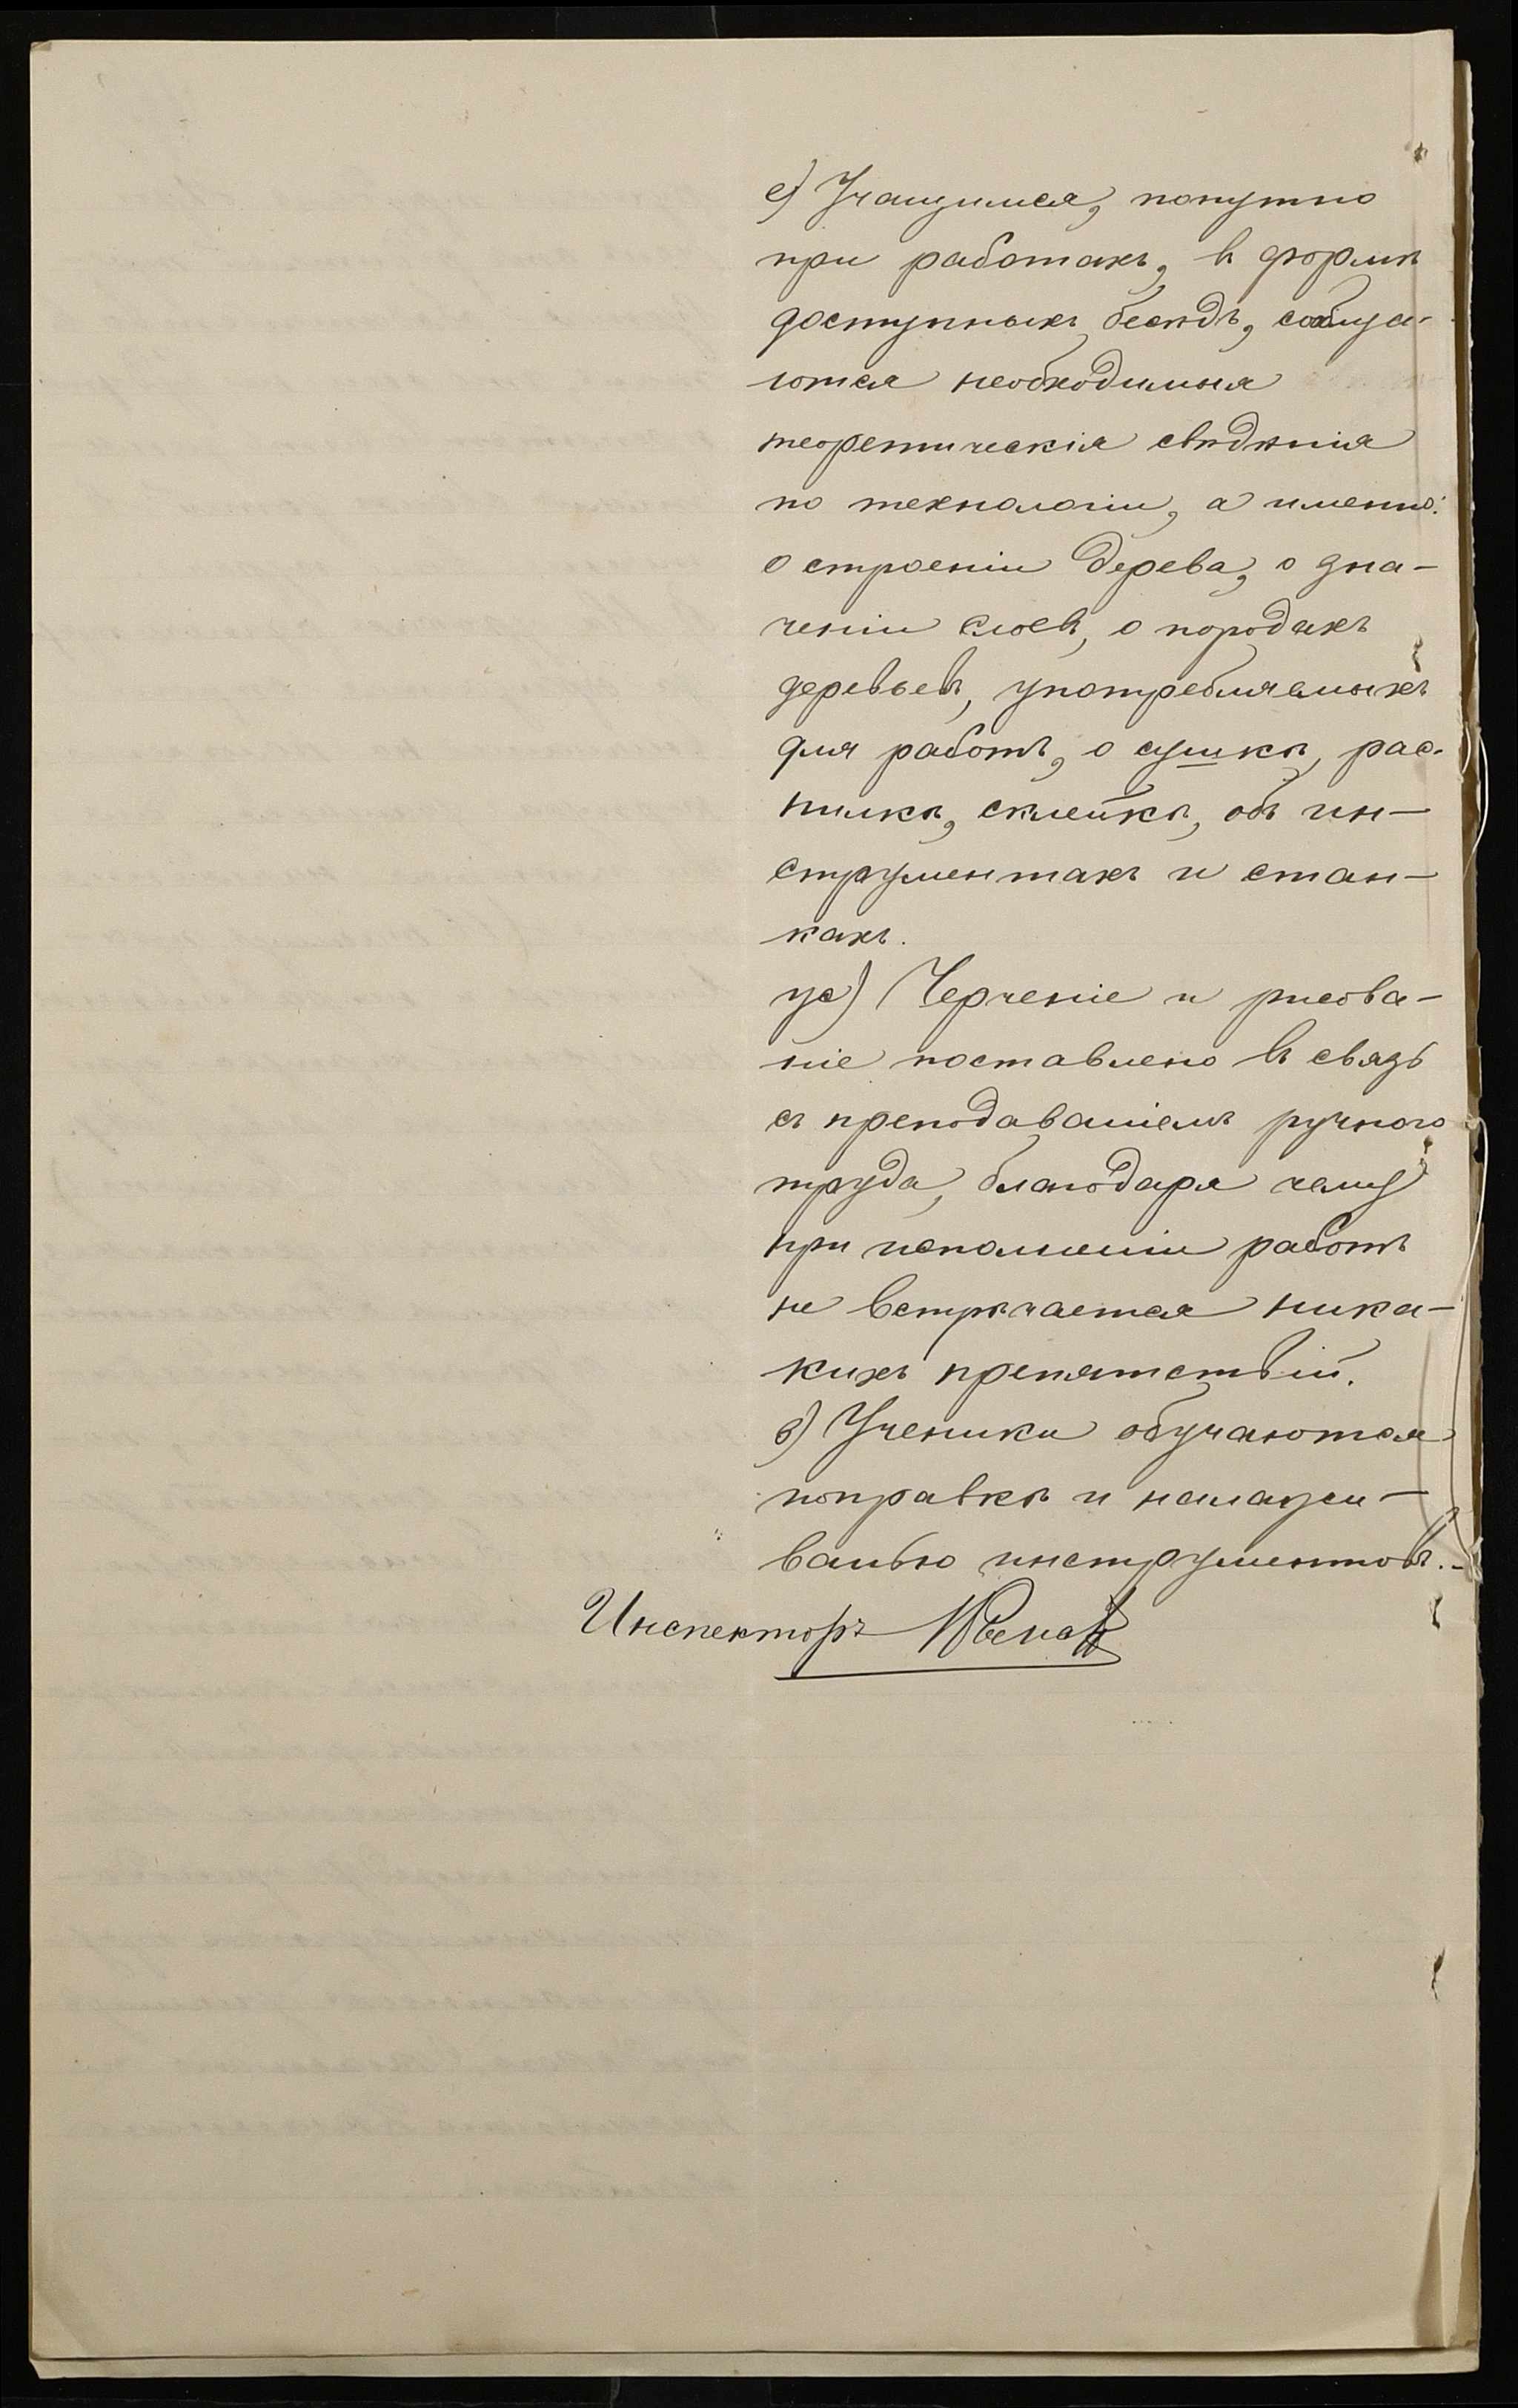 е) Учащимся, попутно
при работахъ, въ формѣ
доступныхъ бесѣдъ, сообща-
ются необходимыя
теоретическія свѣдѣнія
по технологіи, а именно:
о строеніи дерева, о зна-
ченіи слоевъ, о породахъ
деревьевъ, употребляемыхъ
для работъ, о сушкѣ, рас-
пилкѣ, склейкѣ, объ ин-
струментахъ и стан-
кахъ.
ж) Черченіе и рисова-
ніе поставлено въ связь
съ преподаваніемъ ручного
труда, благодаря чему
при исполненіи работъ
не встрѣчается ника-
кихъ препятствій.
з) Ученики обучаются
поправкѣ и налажи-
ванью инструментовъ.-
Инспекторъ